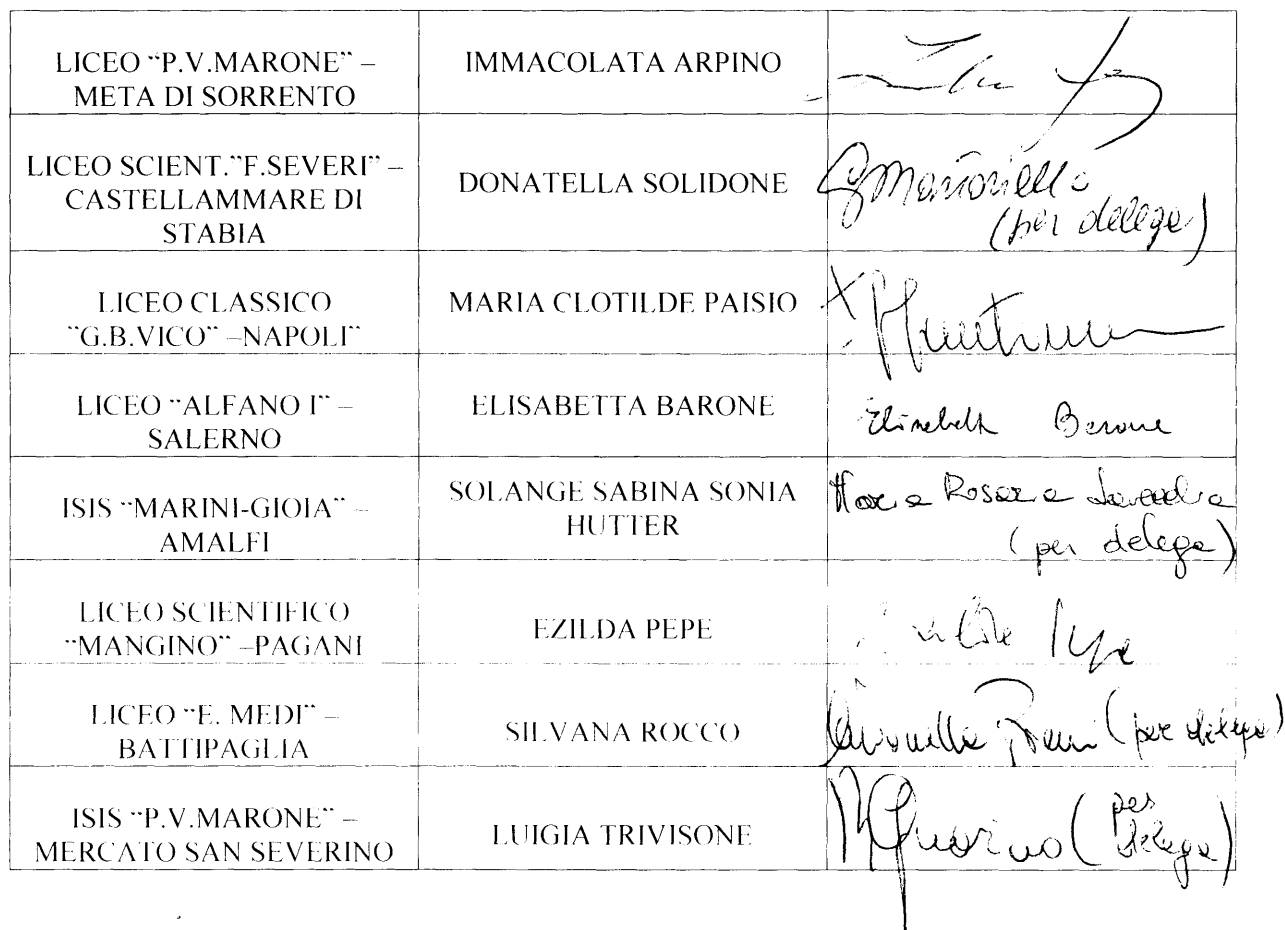 LICEO "P.V.MARONE" –
META DI SORRENTO
IMMACOLATA ARPINO
LICEO SCIENT."F.SEVERI" –
CASTELLAMMARE DI
STABIA
DONATELLA SOLIDONE
(per delega)
LICEO CLASSICO
"G.B.VICO" –NAPOLI"
MARIA CLOTILDE PAISIO
LICEO "ALFANO I" –
SALERNO
ELISABETTA BARONE
Elisabetta Barone
ISIS "MARINI-GIOIA" –
AMALFI
SOLANGE SABINA SONIA
HUTTER
Maria Rosaria
(per delega)
LICEO SCIENTIFICO
"MANGINO" –PAGANI
EZILDA PEPE
LICEO "E. MEDI" –
BATTIPAGLIA
SILVANA ROCCO
(per delega)
ISIS "P.V.MARONE" –
MERCATO SAN SEVERINO
LUIGIA TRIVISONE
(per
delega)